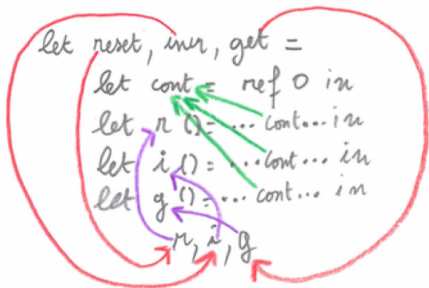 let reset, incr, get =
let cont = ref 0 in
let r () = ... cont... in
let i () = ... cont... in
let g () = ... cont... in
r, i, g